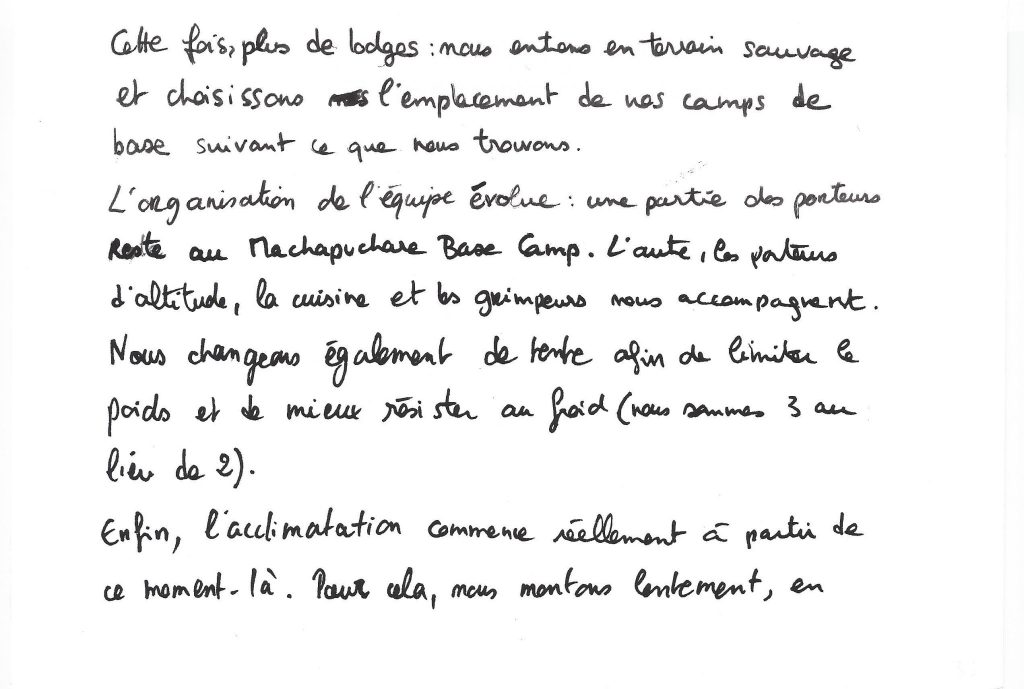 Cette fois, plus de lodges : nous entrons en terrain sauvage
et choisissons l'emplacement de nos camps de
base suivant ce que nous trouvons.
L'organisation de l'équipe évolue : une partie des porteurs
Reste au Machapuchare Base Camp. L'autre, les porteurs
d'altitude, la cuisine et les grimpeurs nous accompagnent.
Nous changeons également de tente afin de limiter le
poids et de mieux résister au froid (nous sommes 3 au
lieu de 2).
Enfin, l'acclimatation commence réellement à partir de
ce moment-là. Pour cela, nous montons lentement, en